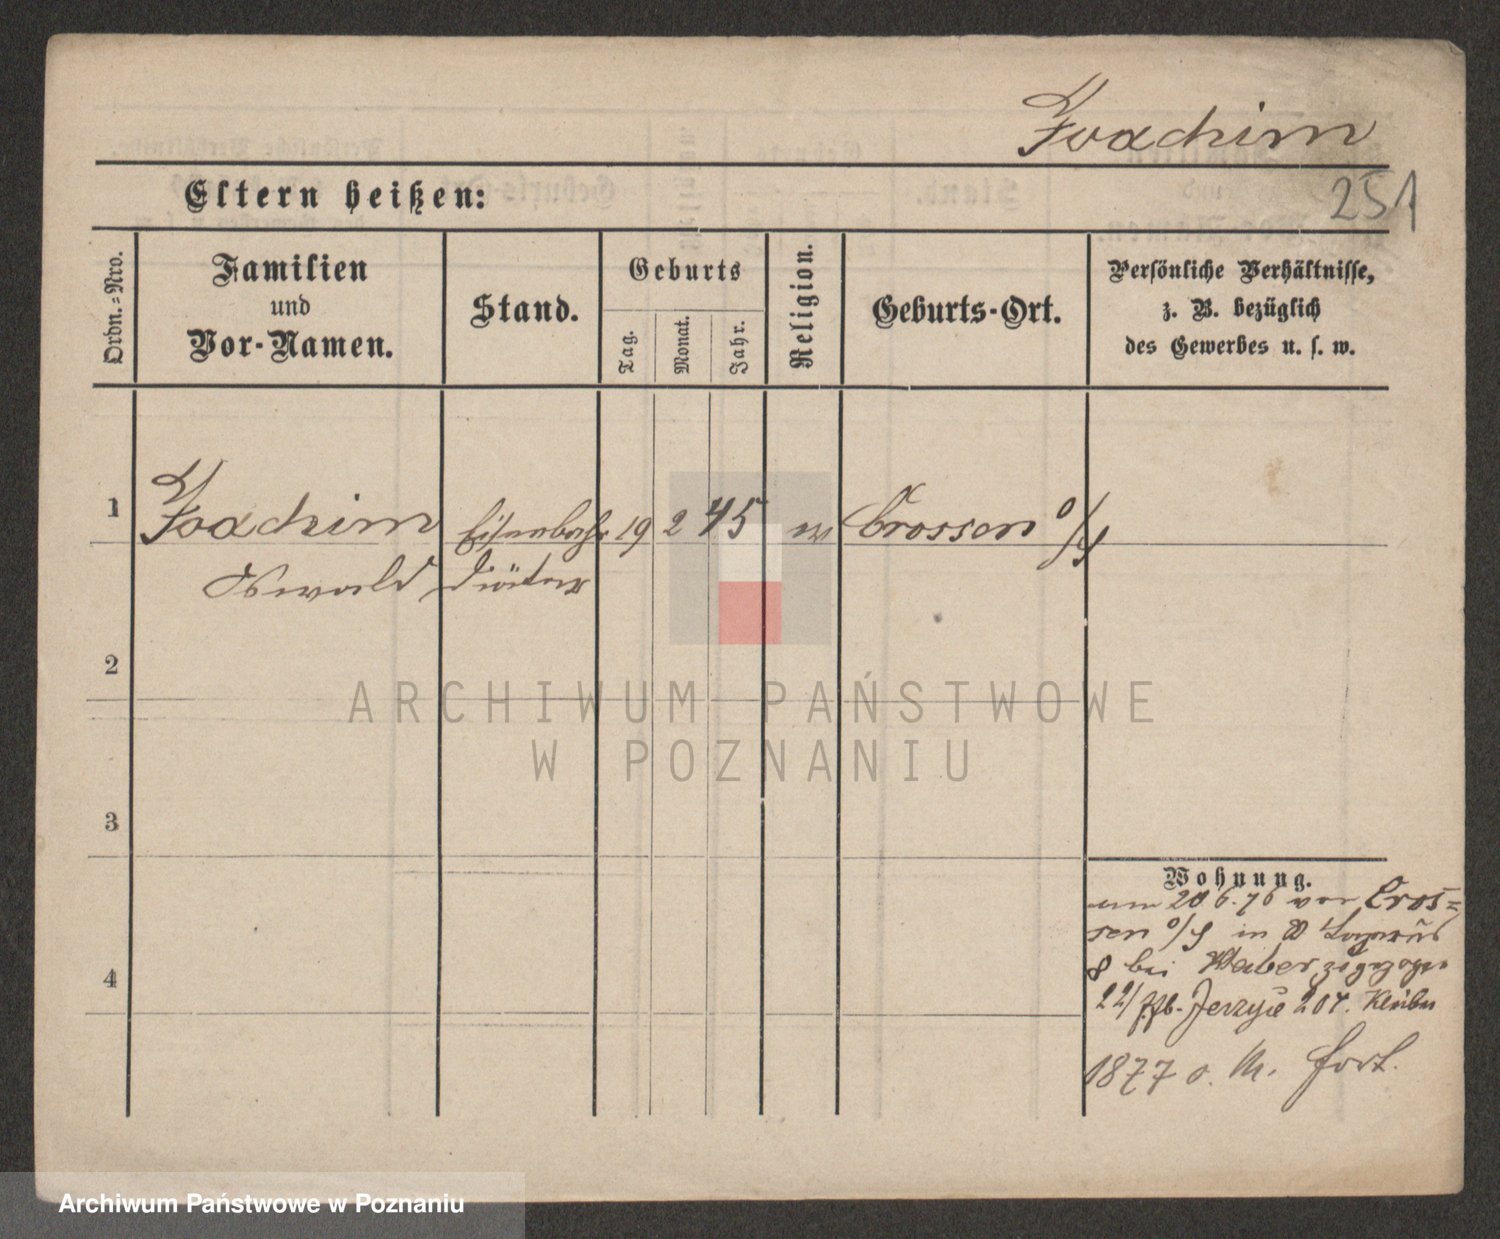 Joachim
251
Eltern heißen:
Ordn.-Nro.
Familien
und
Vor-Namen.
Stand.
Geburts
Tag.
Monat.
Jahr.
Religion.
Geburts-Ort.
Persönliche Verhältnisse,
z. B. bezüglich
des Gewerbes u. s. w.
1 Joachim Eisenbahn 19 2 45 ev Crossen o/
Oswald Diätar
2
3
4
Wohnung.
am 20 6. 76 von Cros=
sen o/ in
8 bei Weber
22/ Jerzyce 207.
1877 o. M. fort.
ARCHIWUM PAŃSTWOWE
W POZNANIU
Archiwum Państwowe w Poznaniu